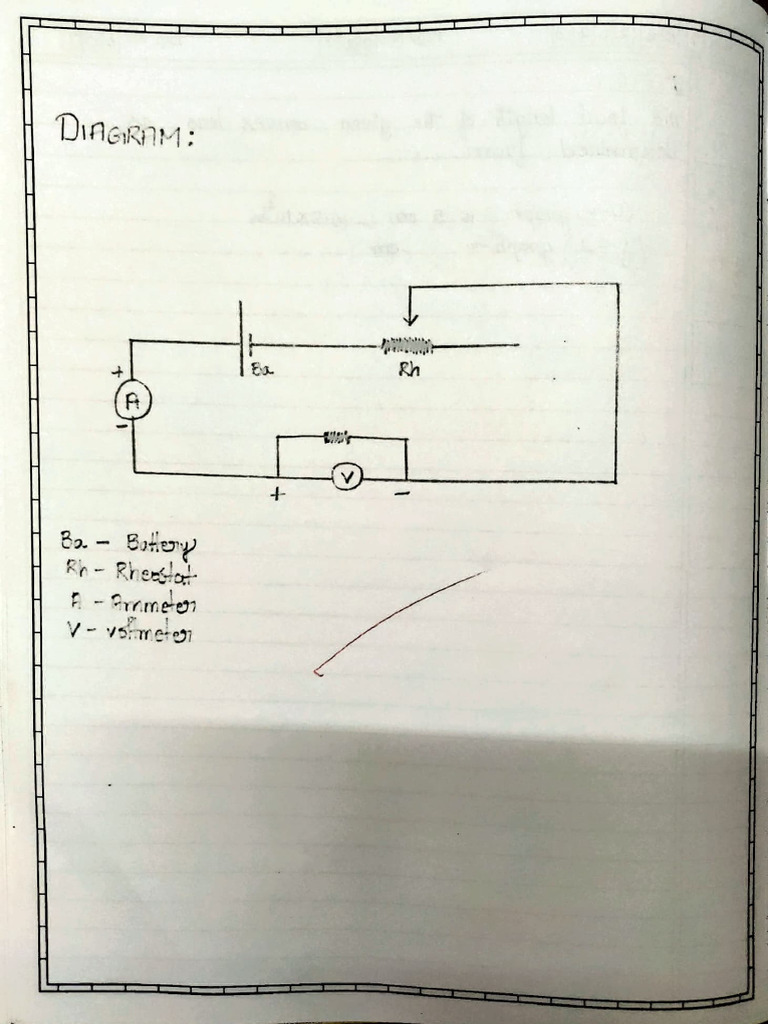 DIAGRAM:
Ba
Rh
+
A
-
V
+ -
Ba - Battery
Rh - Rheostat
A - Ammeter
V - voltmeter